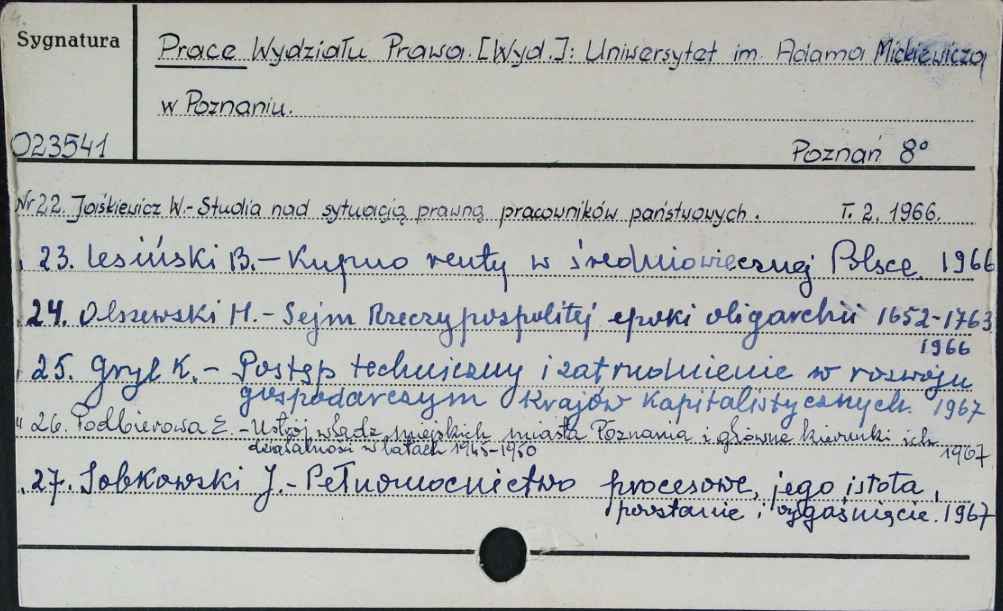 Sygnatura
Prace Wydziału Prawa. [Wyd.]: Uniwersytet im. Adama Mickiewicza
w Poznaniu.
023541
Poznań 8°
Nr 22. Jaśkiewicz W.-Studia nad sytuacją prawną pracowników państwowych. T. 2. 1966.
23. Lesiński B.- Kupno renty w średniowiecznej Polsce. 1966
24. Olszewski H.- Sejm Rzeczypospolitej epoki oligarchii 1652-1763
1966
25. Gryl K.- Postęp techniczny i zatrudnienie w rozwoju
gospodarczym krajów kapitalistycznych. 1967
" 26. Podbierowa E.-Ustrój władz miejskich miasta Poznania i główne kierunki ich
działalności w latach 1945-1950 1967.
27. Sobkowski J.- Pełnomocnictwo procesowe, jego istota,
powstanie i wygaśnięcie. 1967